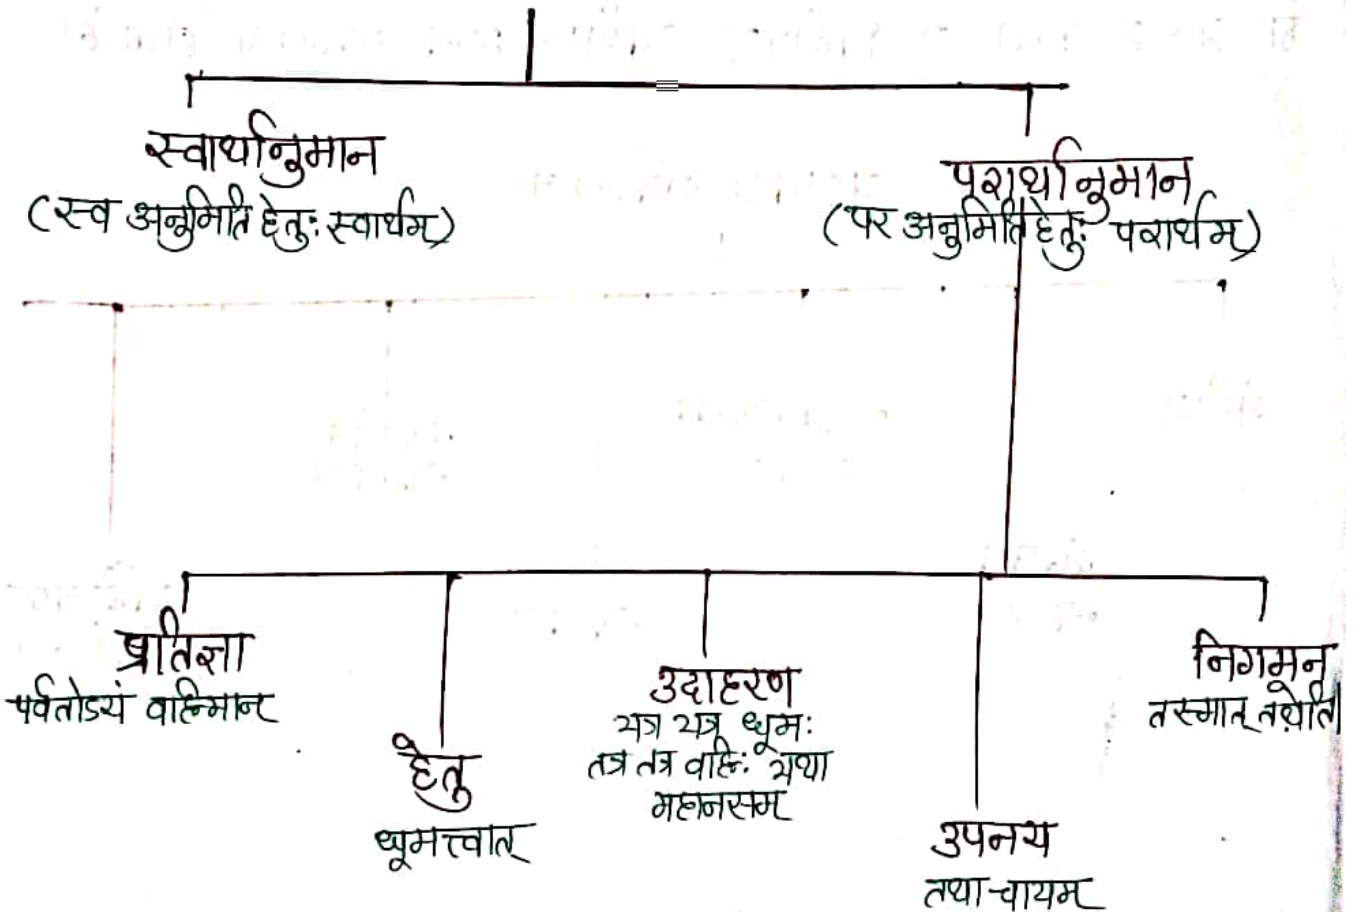 स्वार्थानुमान
(स्व अनुमिति हेतुः स्वार्थम्)
परार्थानुमान
(पर अनुमिति हेतुः परार्थम्)
प्रतिज्ञा
पर्वतोऽयं वह्निमान्
हेतु
धूमत्त्वात्
उदाहरण
यत्र यत्र धूमः
तत्र तत्र वह्निः यथा
महानसम्
उपनय
तथा चायम्
निगमन
तस्मात् तथेति